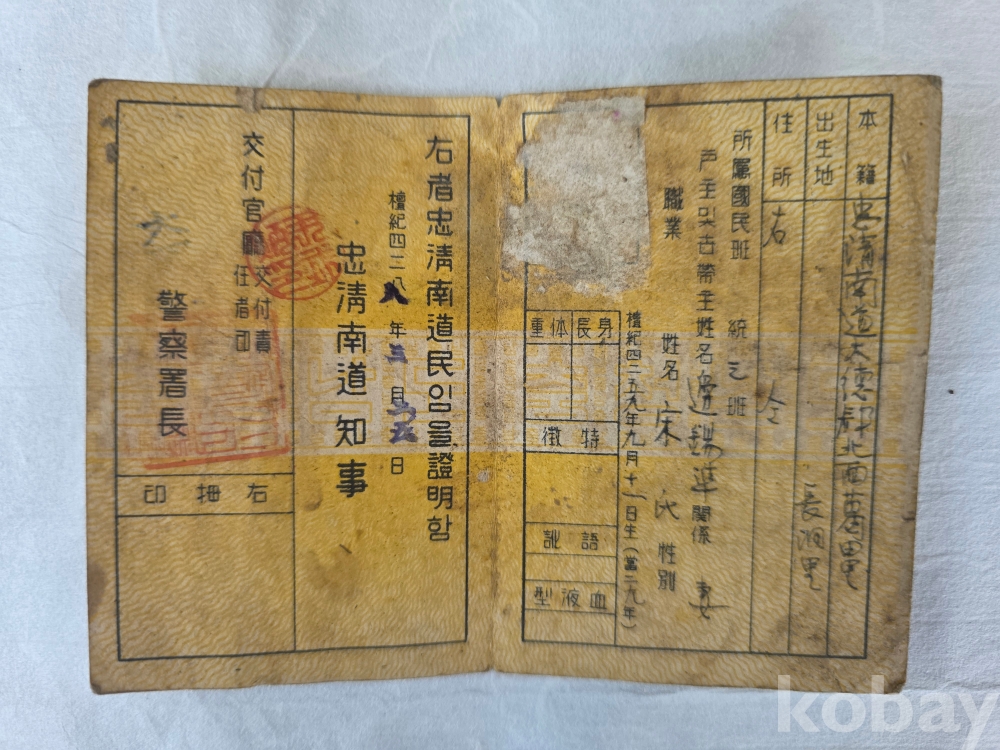 本籍 忠淸南道大德郡北面葛田里
出生地 長洞里
住所 右 仝
所屬國民班 統 三 班
戶主및古帶主姓名 邊錫準 關係 妻
職業 姓名 宋氏 性別
檀紀四二五九年九月十一日生(當二九年)
身長
体重
特徵
語訛
血液型
右者忠淸南道民임을證明함
檀紀四二八八年三月 日
忠淸南道知事
交付官廳 交付責任者印
警察署長
右拇印
kobay